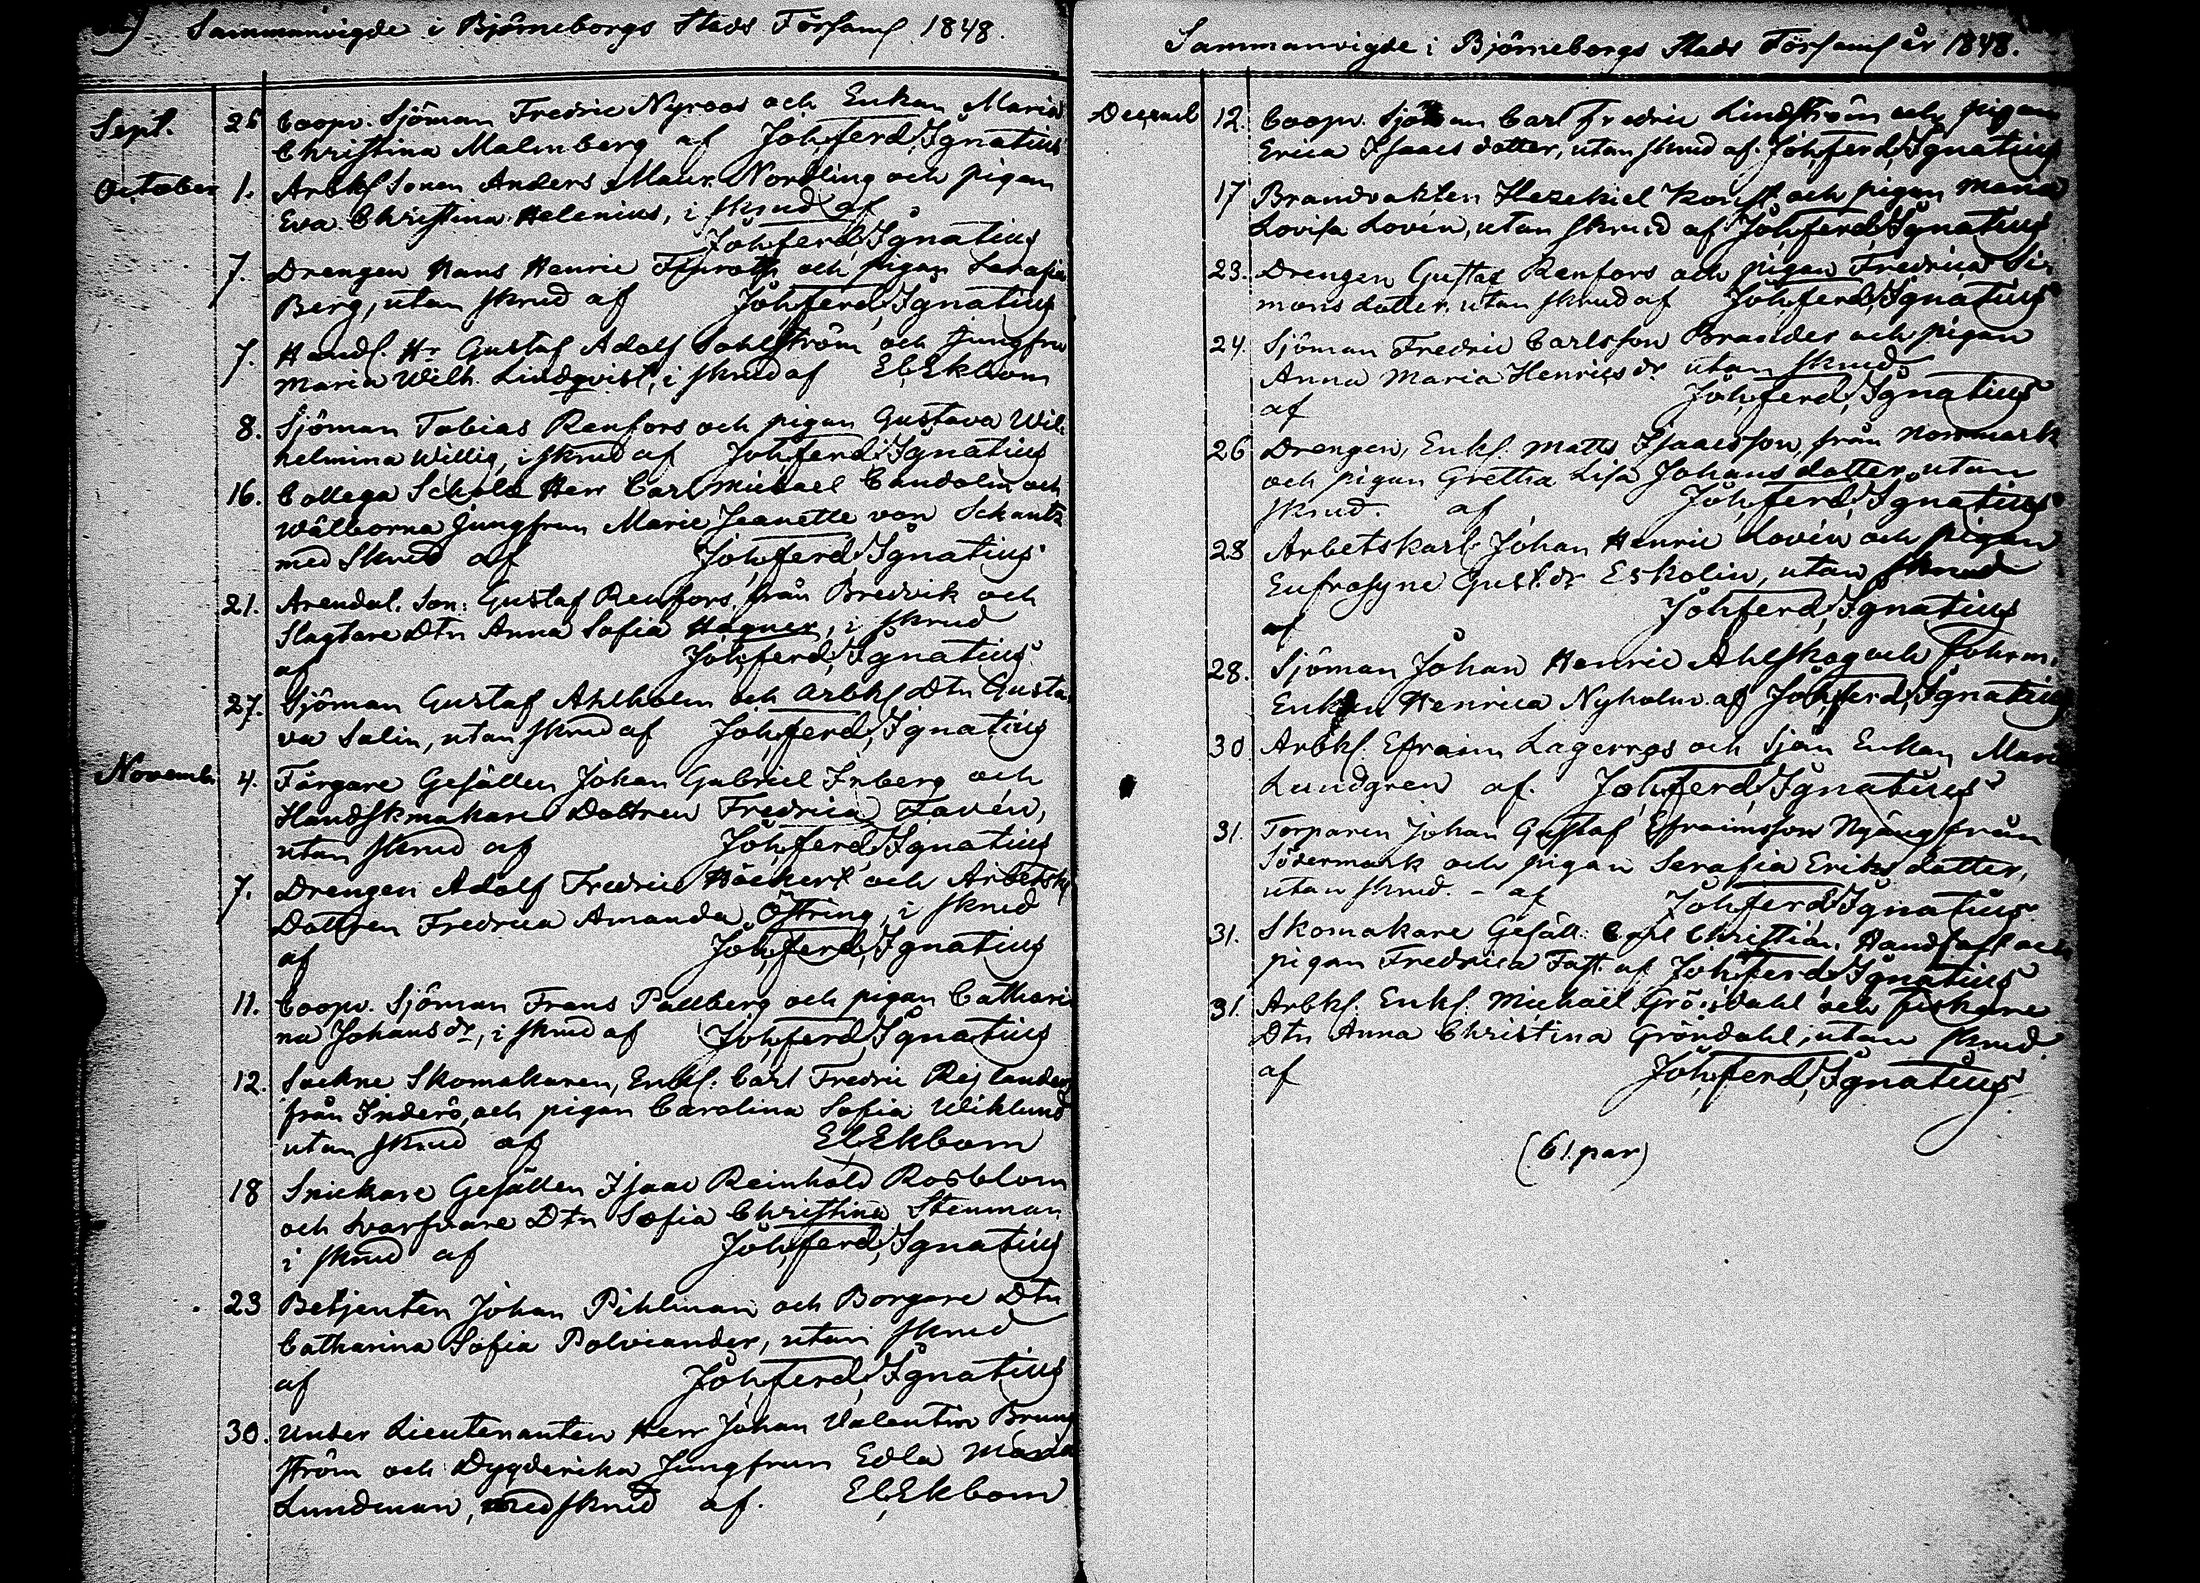 Sammanvigde i Björneborgs Stads Församl 1848.
Sept. 25 Coopv. Sjöman Fredric Nyroos och Enkan Maria
Christina Malmberg af Joh. Ferd. Ignatius
October 1. Arbkl Sonen Anders Maur. Nordling och pigan
Eva Christina Helenius, i skrud af
Joh. Ferd. Ignatius
7. Drengen Hans Henric och pigan Serafia
Berg, utan skrud af Joh. Ferd. Ignatius
7. Handl. Hr Gustaf Adolf Sohlström och Jungfru
Maria Wilh. Lindqvist, i skrud af Ekbom
8. Sjöman Tobias Renfors och pigan Gustava Wil-
helmina Willig, i skrud af Joh. Ferd. Ignatius
16. Collega Scholæ Herr Carl Michael Candolin och
Wälborna Jungfrun Marie Jeanette von Schantz
med Skrud af Joh. Ferd. Ignatius
21. Arendat. Son: Gustaf Renfors från Bredvik och
Slagtare Dtn Anna Sofia Hagner, i skrud
af Joh. Ferd. Ignatius
27. Sjöman Gustaf Ahlholm och Arbkl Dtn Gusta-
va Salin, utan skrud af Joh. Ferd. Ignatius
Novemb 4. Färgare Gesällen Johan Gabriel Inberg och
Handskmakare Dottren Fredrica Favén,
utan skrud af Joh. Ferd. Ignatius
7. Drengen Adolf Fredric Höckert och Arbetsk
Dottren Fredrica Amanda Östring, i skrud
af Joh. Ferd. Ignatius
11. Coopv. Sjöman Frans Pallberg och pigan Cathari
na Johansdr, i skrud af Joh. Ferd. Ignatius
12. Sockne Skomakaren, Enkl. Carl Fredric
från Inderö, och pigan Carolina Sofia Wiklund
utan skrud af Ekbom
18 Snickare Gesällen Isaac Reinhold Rosblom
och Svarfvare Dtn Sofia Christina Stenman
i skrud af Joh. Ferd. Ignatius
23 Betjenten Johan Pihlman och Borgare Dtn
Catharina Sofia Polviander, utan skrud
af Joh. Ferd. Ignatius
30. Under Lieutenanten Herr Johan Valentin Brun
ström och Dygderika Jungfrun Edla Maria
Lundman, med skrud af. Ekbom
Sammanvigde i Björneborgs Stads Församl år 1848.
12. Coopv. Sjöman Carl Fredric Lindström och pigan
Erica Isaacs dotter, utan skrud af Joh. Ferd. Ignatius
17 Brandvakten Hezekiel Konst och pigan Maria
Lovisa Lovén, utan skrud af Joh. Ferd. Ignatius
23. Drengen Gustaf Renfors och pigan Fredrica Si-
mons dotter, utan skrud af Joh. Ferd. Ignatius
24. Sjöman Fredric Carlsson Brander och pigan
Anna Maria Henricsdr utan skrud
af Joh. Ferd. Ignatius
26 Drengen, Enkl. Matts Isaacsson, från Norrmark
och pigan Gretha Lisa Johans dotter, utan
skrud. af Joh. Ferd. Ignatius
28 Arbetskarl Johan Henric Lovén och pigan
Eufrosyne Gust.dr Eskolin, utan skrud
af Joh. Ferd. Ignatius
28. Sjöman Johan Henric Ahlskog och
Enkan Henrica Nyholm af Joh. Ferd. Ignatius
30 Arbkl. Efraim Lagerroos och Sjöm Enkan Mari
Lundgren af. Joh. Ferd. Ignatius
31. Torparen Johan Gustaf Efraimsson Nygång från
Södermark och pigan Serafia Eriks dotter,
utan skrud. - af Joh. Ferd. Ignatius
31. Skomakare Gesäll: Carl Christian och
pigan Fredrica Fast af Joh. Ferd. Ignatius
31. Arbkl. Enkl. Michaël Gröndahl och fiskare
Dtn Anna Christina Gröndahl, utan skrud.
af Joh. Ferd. Ignatius
(61. par)